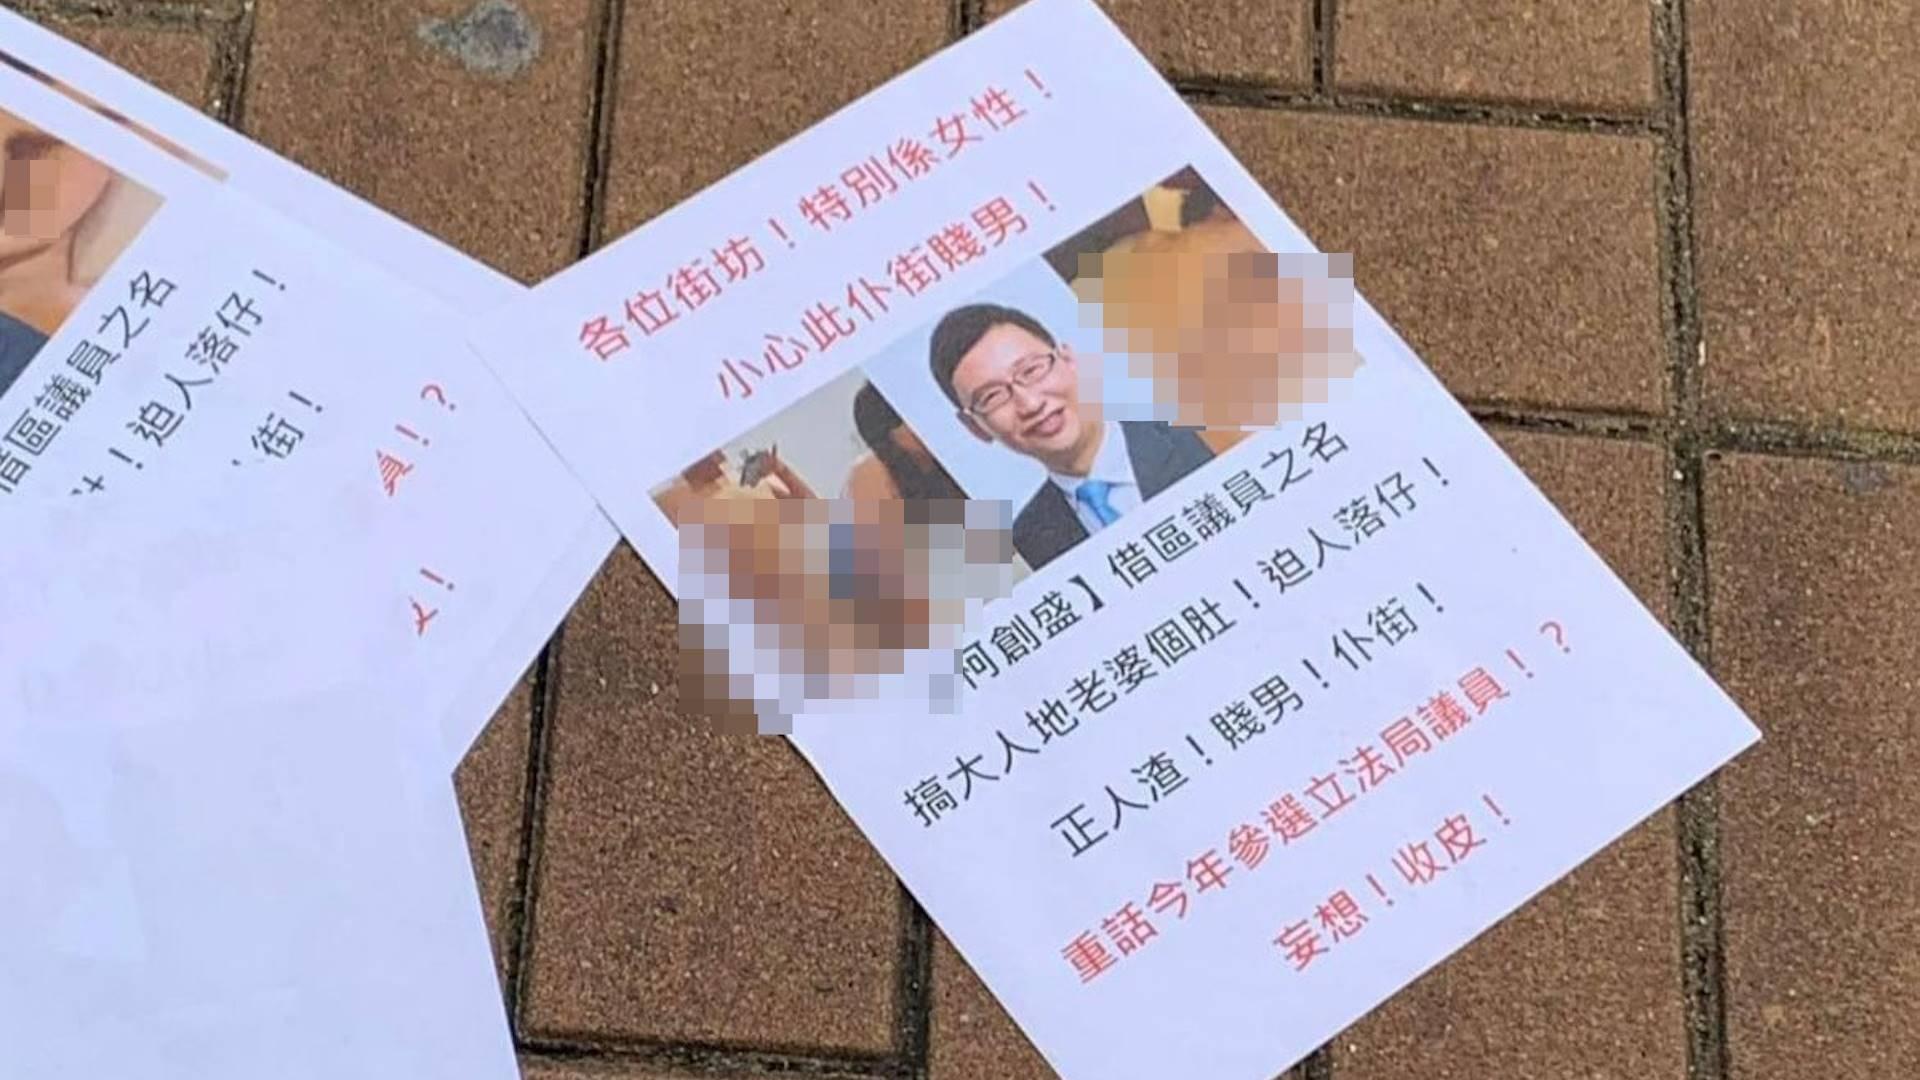 各位街坊！特別係女性！
小心此仆街賤男！
柯創盛】借區議員之名
搞大人地老婆個肚！迫人落仔！
正人渣！賤男！仆街！
重話今年參選立法局議員！？
妄想！收皮！
借區議員之名
！迫人落仔！
街！
員！？
！